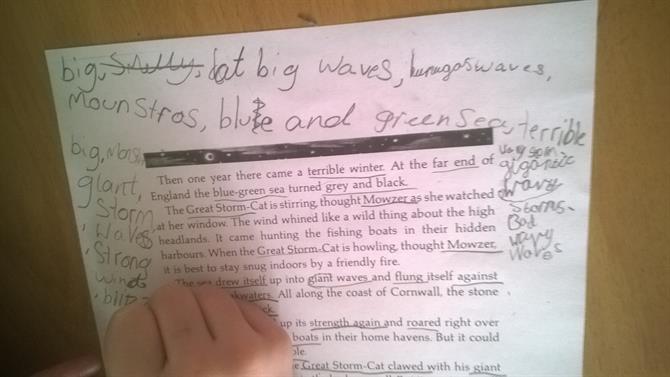 big, Smelly, bat big waves, hunugos waves,
Mounstros, blue and green Sea, terrible
big,
giant,
Storm
, waves
, Strong
winds
gigantic
wavy
Storms.
Bad
wavy
waves
Then one year there came a terrible winter. At the far end of
England the blue-green sea turned grey and black.
The Great Storm-Cat is stirring, thought Mowzer as she watched
at her window. The wind whined like a wild thing about the high
headlands. It came hunting the fishing boats in their hidden
harbours. When the Great Storm-Cat is howling, thought Mowzer,
it is best to stay snug indoors by a friendly fire.
The sea drew itself up into giant waves and flung itself against
All along the coast of Cornwall, the stone
up its strength again and roared right over
boats in their home havens. But it could
Great Storm-Cat clawed with his giant